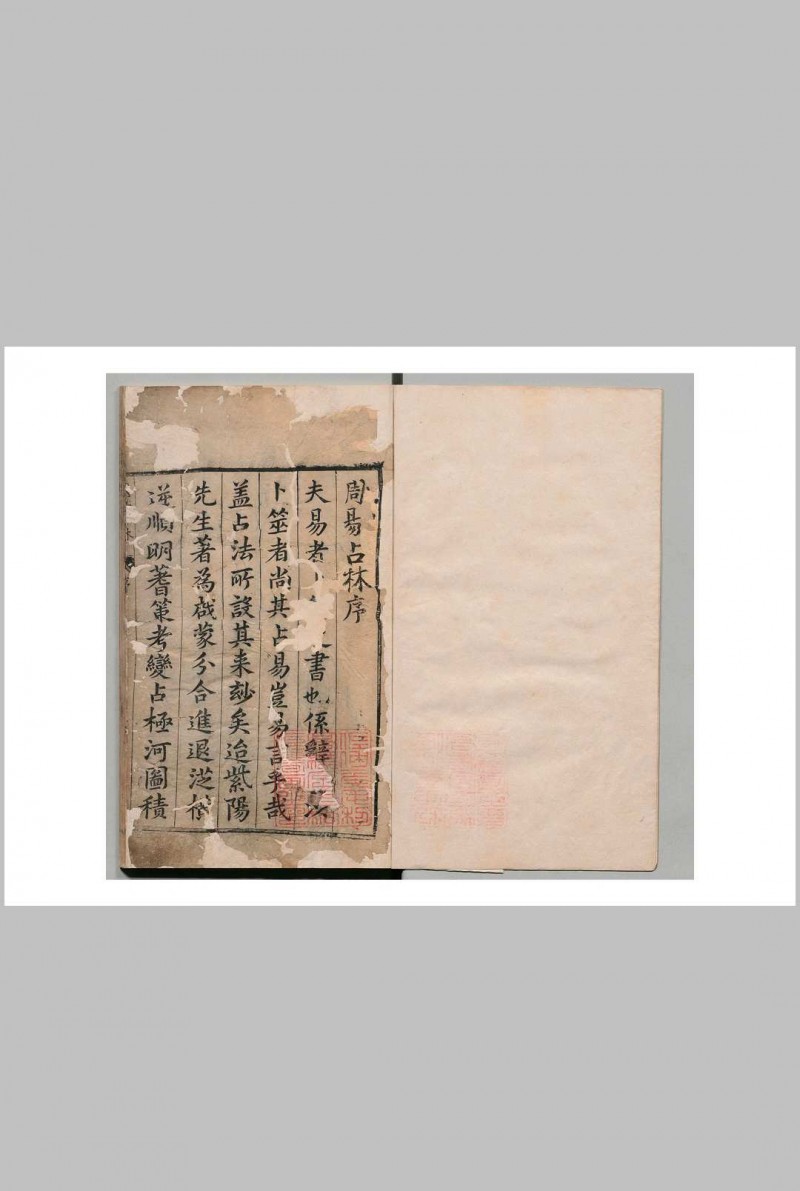 周易占林序
夫易者之書也係辭
卜筮者尚其占易豈易言乎哉
盖占法所設其来玅矣迨紫陽
先生著為啟蒙分合進退從横
逆順明蓍策考變占極河圖積